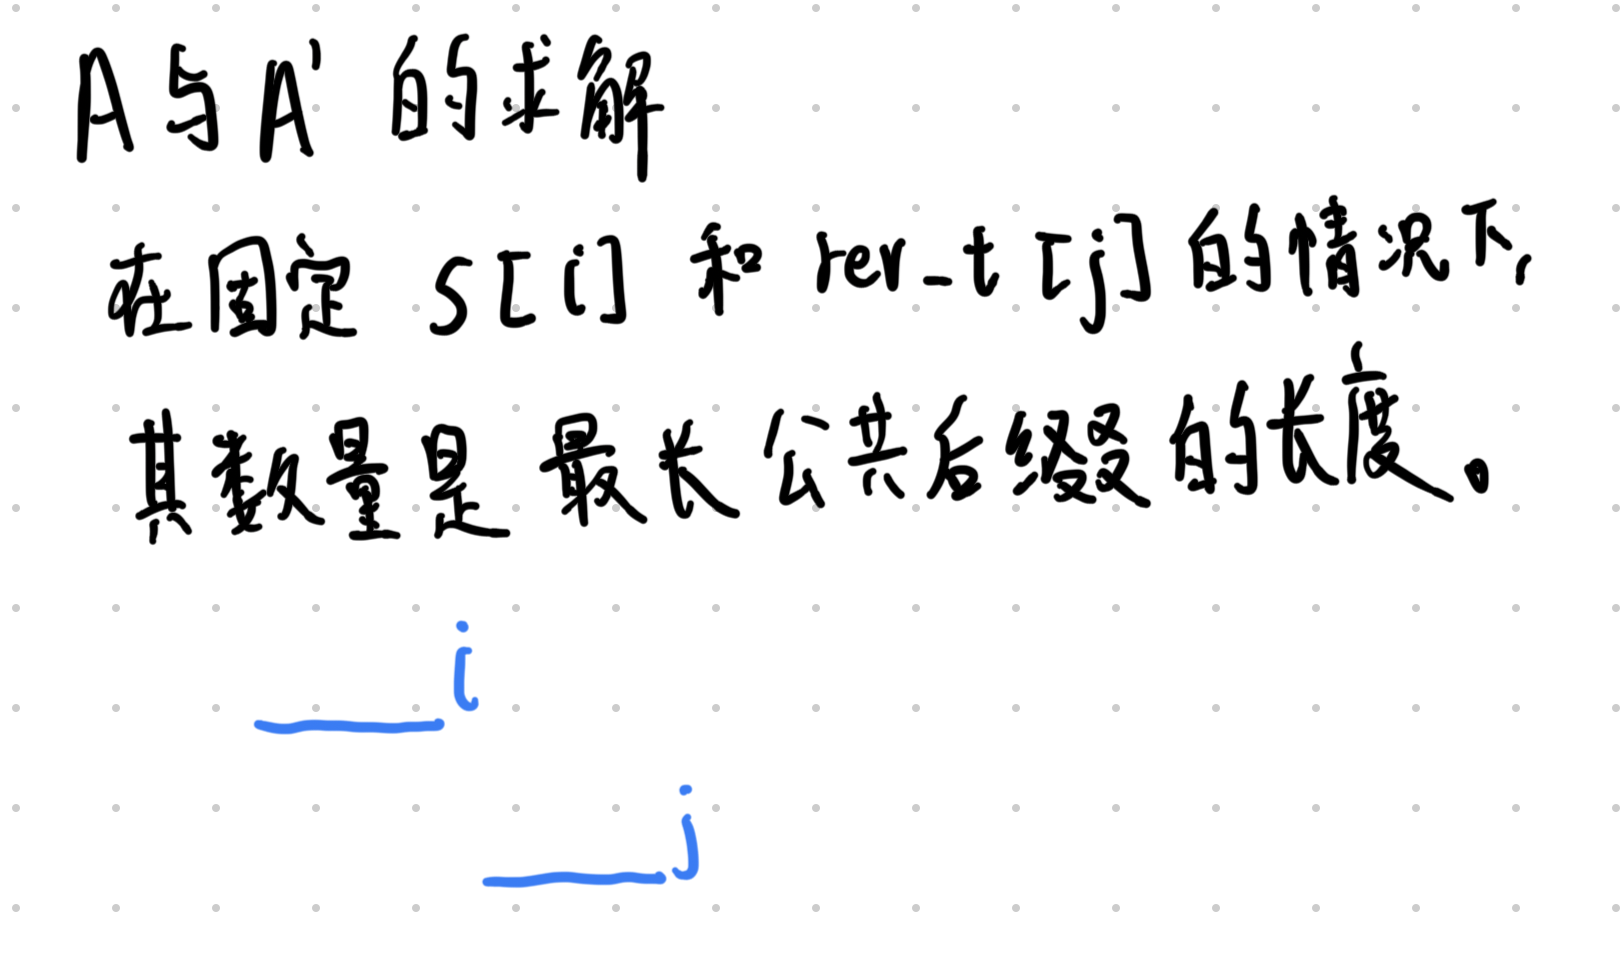 A与A' 的求解
在固定 S[i] 和 rev_t[j] 的情况下,
其数量是 最长公共后缀的长度。
i
j